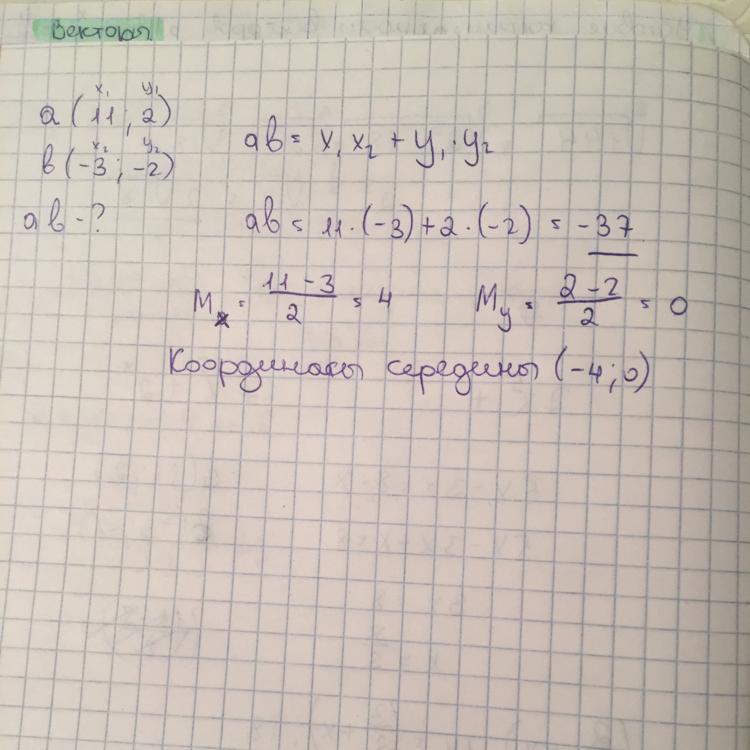 Векторы
x₁ y₁
a (11; 2)
x₂ y₂
в (-3; -2)
ab - ?
ab = x₁ x₂ + y₁ · y₂
ab = 11 · (-3) + 2 · (-2) = -37
Mx = (11 - 3)/2 = 4
My = (2 - 2)/2 = 0
Координаты середины (-4; 0)